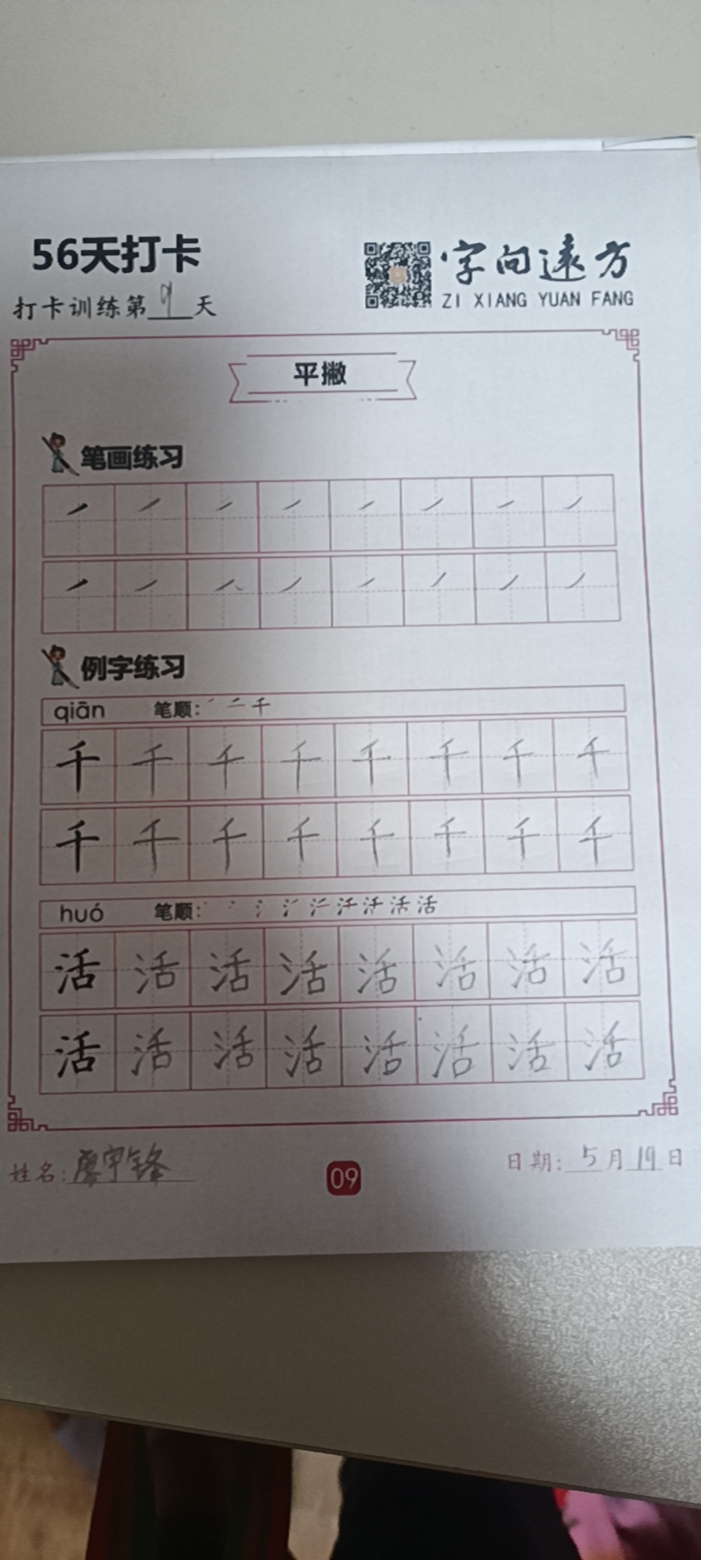 56天打卡
字向远方
打卡训练第9天
ZI XIANG YUAN FANG
平撇
笔画练习
例字练习
qiān 笔顺: ノ 二 千
千 千 千 千 千 千 千 千
千 千 千 千 千 千 千 千
huó 笔顺:
活 活 活 活 活 活 活 活
活 活 活 活 活 活 活 活
姓名:廖宇锋
09
日期:5月19日